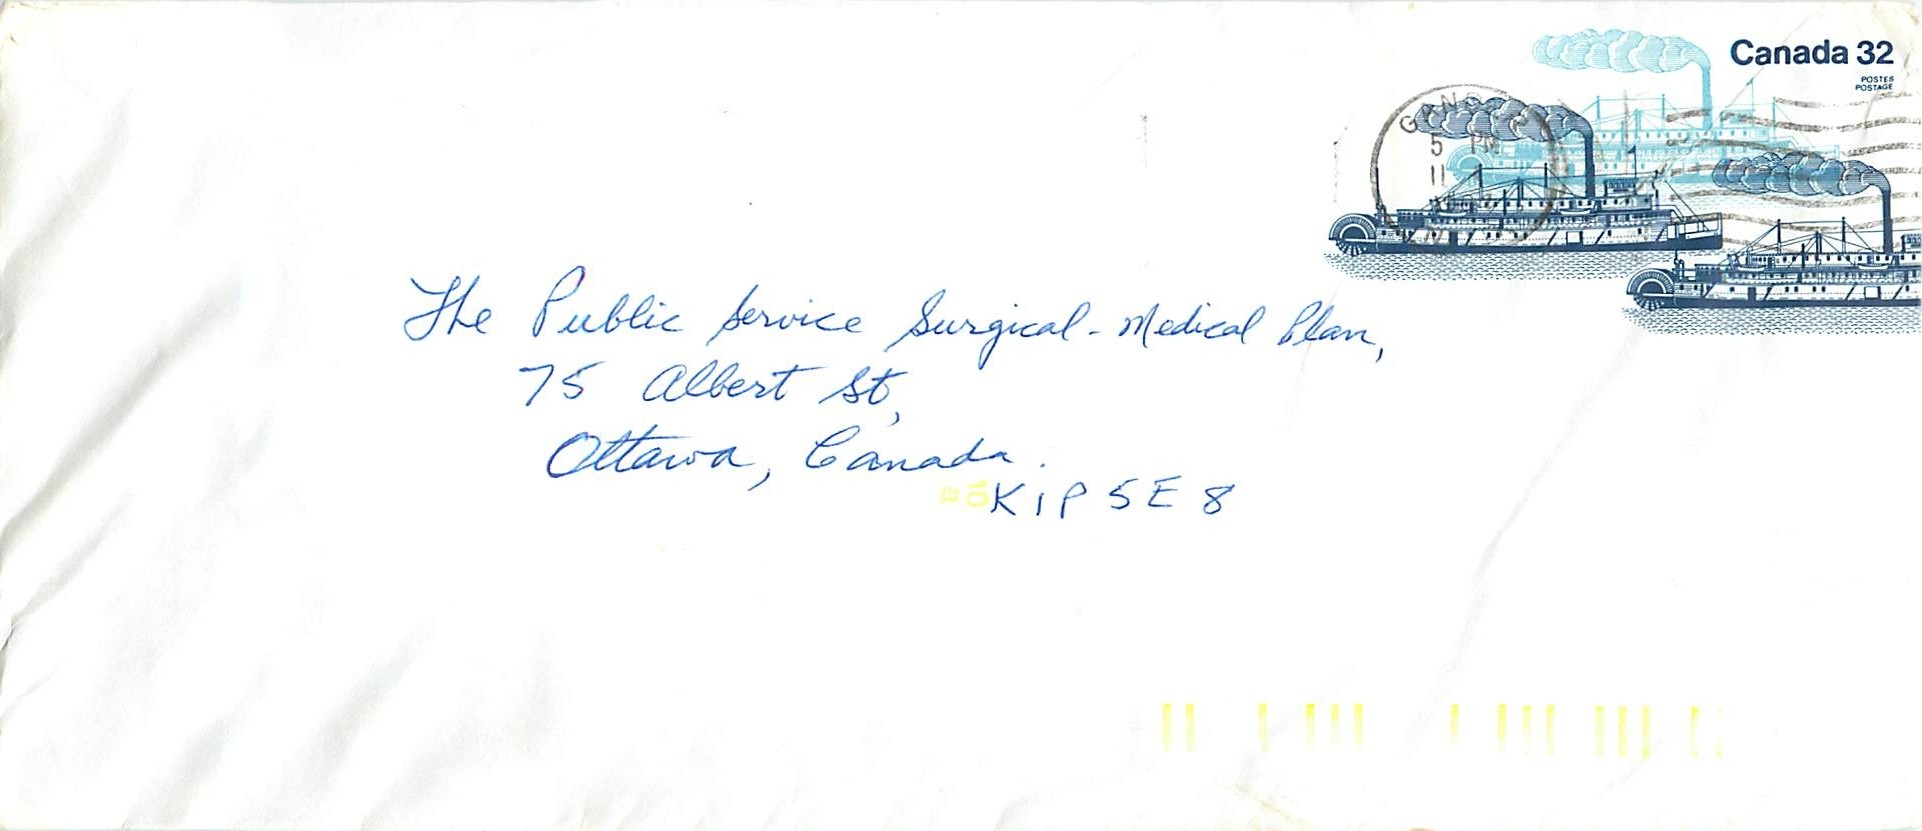 Canada 32
POSTES
POSTAGE
5 PM
11
The Public Service Surgical-Medical Plan,
75 Albert St,
Ottawa, Canada.
K1P 5E8
10
a